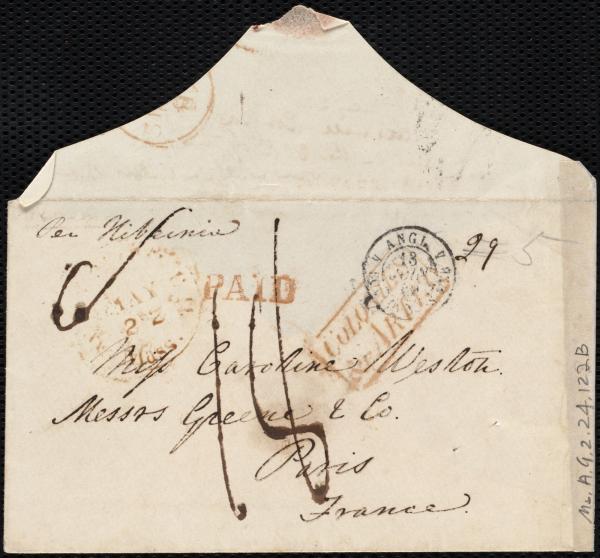 Per Hibernia
29 5
PAID
MAY
2
ANGL.
13
COLONIES
&c. ART.
15
Miss Caroline Weston.
Messrs Greene & Co.
Paris
France.
Ms. A. 9. 2. 24. 122B